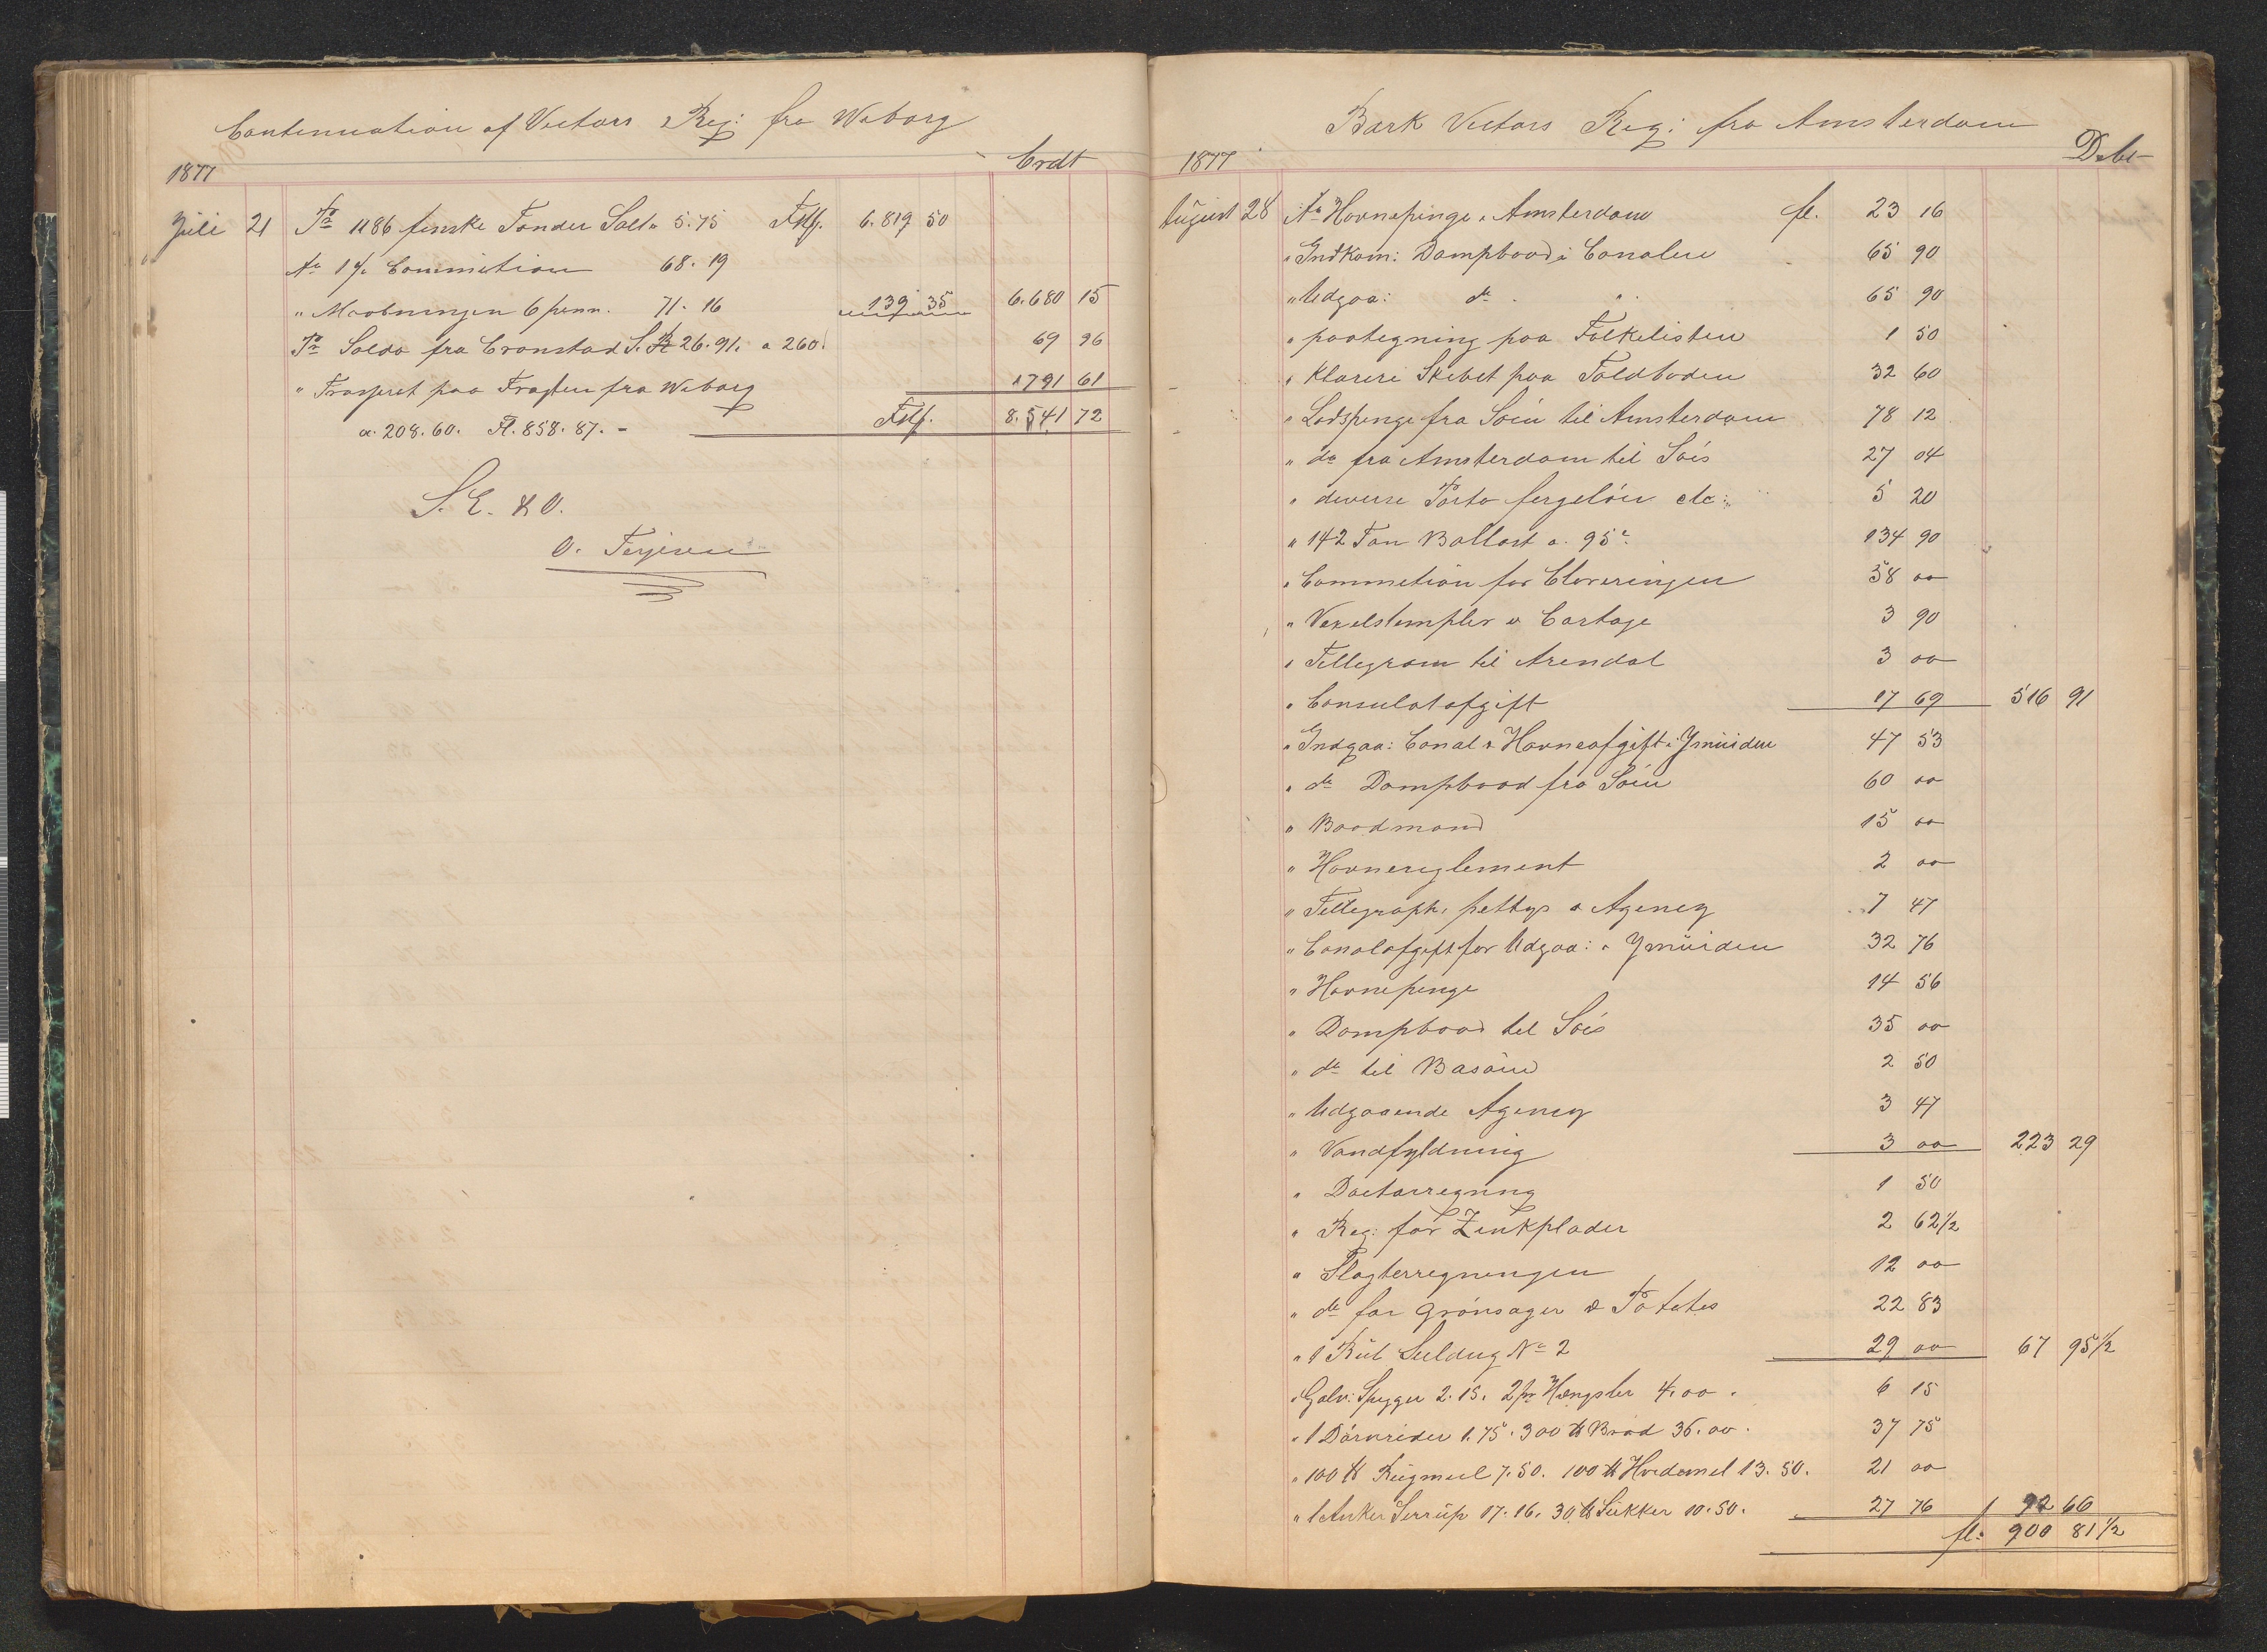 Contenuation af Victors Reg: fra Wiborg
1877 Crdt
Juli 21 Pr 1186 finske Tønder Salt a 5.75 Fmf. 6.819 50
An 1 % Commition 68. 19
" Maabningen 6 penn. 71. 16 139 35 6.680 15
Pr Saldo fra Cronstad S. R 26.91. a 260. 69 96
" Trasseret paa Fragten fra Wiborg 1791 61
a. 208. 60. Fl. 858. 87. - Fmf. 8.541 72
S. E. & O.
O. Terjesen
Bark Victors Reg: fra Amsterdam
1877 Debt
August 28 An Havnepenge i Amsterdam fl. 23 16
" Indkom: Dampbaad i Canalen 65 90
" Udgaa: do " 65 90
" paategning paa Folkelisten 1 50
" Klarere Skibet paa Toldboden 32 60
" Lodspenge fra Söen til Amsterdam 78 12
" do fra Amsterdam til Söes 27 04
" diverse Porto fergelön etc: 5 20
" 142 Ton Ballast a. 95 c. 134 90
" Commetion for Clareringen 58 00
" Vexelstempler & Cartage 3 90
" Tellegram til Arendal 3 00
" Consulatafgift 17 69 516 91
" Indgaa: Canal & Havneafgift i Ymüiden 47 53
" do Dampbaad fra Söen 60 00
" Baadmand 15 00
" Havnereglement 2 00
" Tellegraph, pettys & Agency 7 47
" Canalafgift for Udgaa: i Ymüiden 32 76
" Havnepenge 14 56
" Dampbaad til Söes 35 00
" do til Basäin 2 50
" Udgaaende Agency 3 47
" Vandfyldning 3 00 223 29
" Doctorregning 1 50
" Reg: for Zinkplader 2 62 1/2
" Slagterregningen 12 00
" do for Grönsager & Potetes 22 83
" 1 Rül Seildug No 2 29 00 67 95 1/2
" Galv: Spyger 2. 15. 2 pr Hængsler 4. 00. 6 15
" 1 Dörvrider 1. 75. 300 ℔ Bröd 36. 00. 37 75
" 100 ℔ Rügmeel 7. 50. 100 ℔ Hvedemel 13. 50. 21 00
" 1 Anker Serrüp 17. 16. 30 ℔ Sükker 10. 50. 27 76 92 66
fl. 900 81 1/2